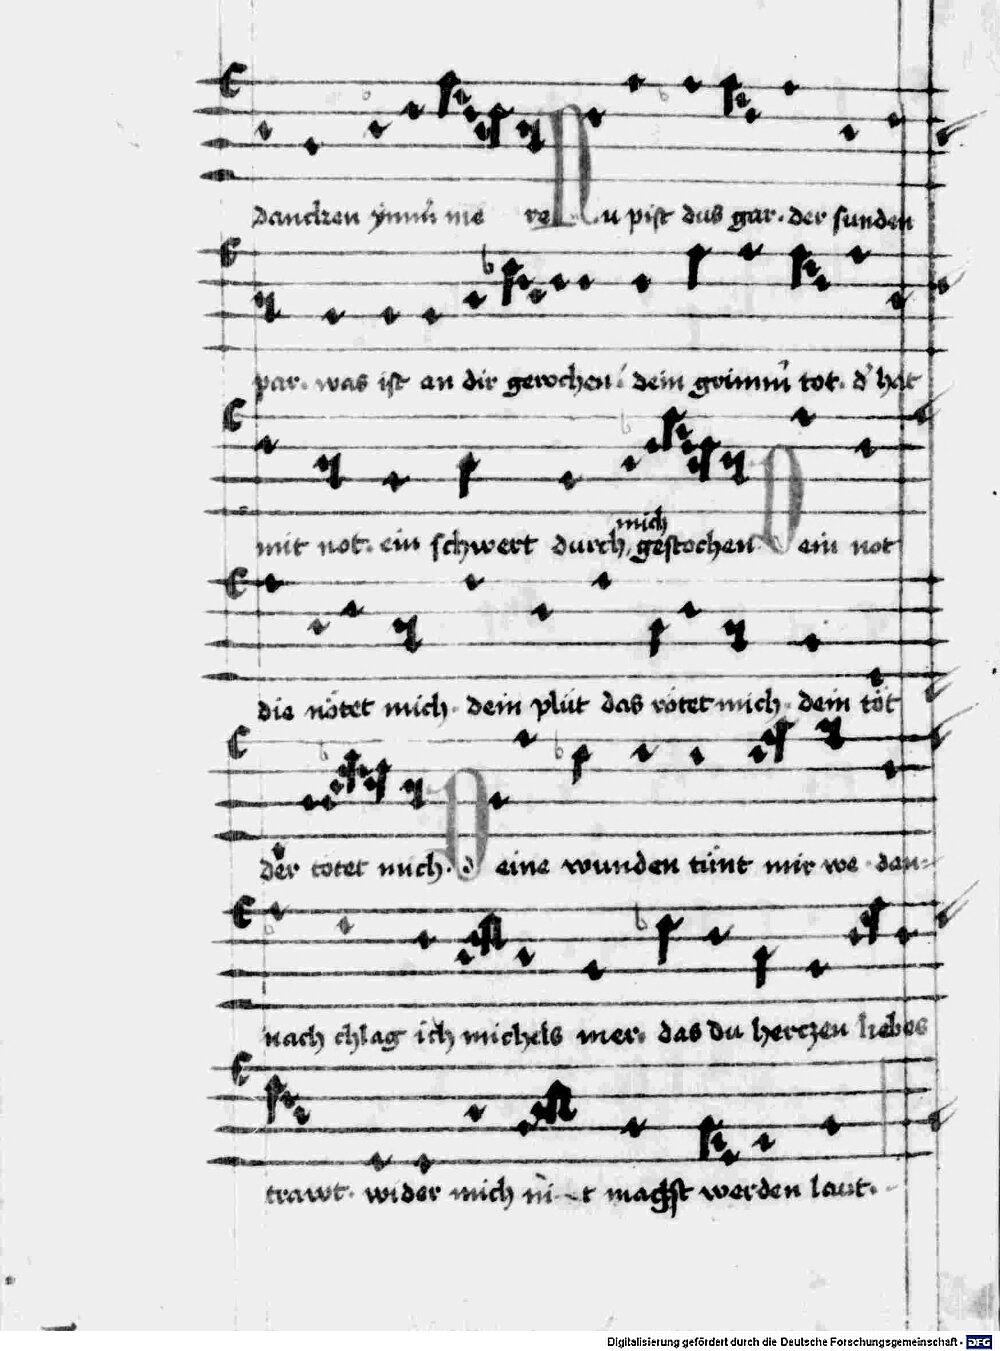 dancken ymm̄ me re Nu pist das gar. der sunden
par. was ist an dir gerochen dein grimm̄ tot. d' hat
mich
mit not. ein schwert durch gestochen. Dein not
die nötet mich. dein plüt das rötet mich. dein töt
der tötet mich. Deine wunden tünt mir we. den-
nach chlag ich michels mer. das du herczen liebes
trawt. wider mich ni-t machst werden laut.
Digitalisierung gefördert durch die Deutsche Forschungsgemeinschaft - DFG